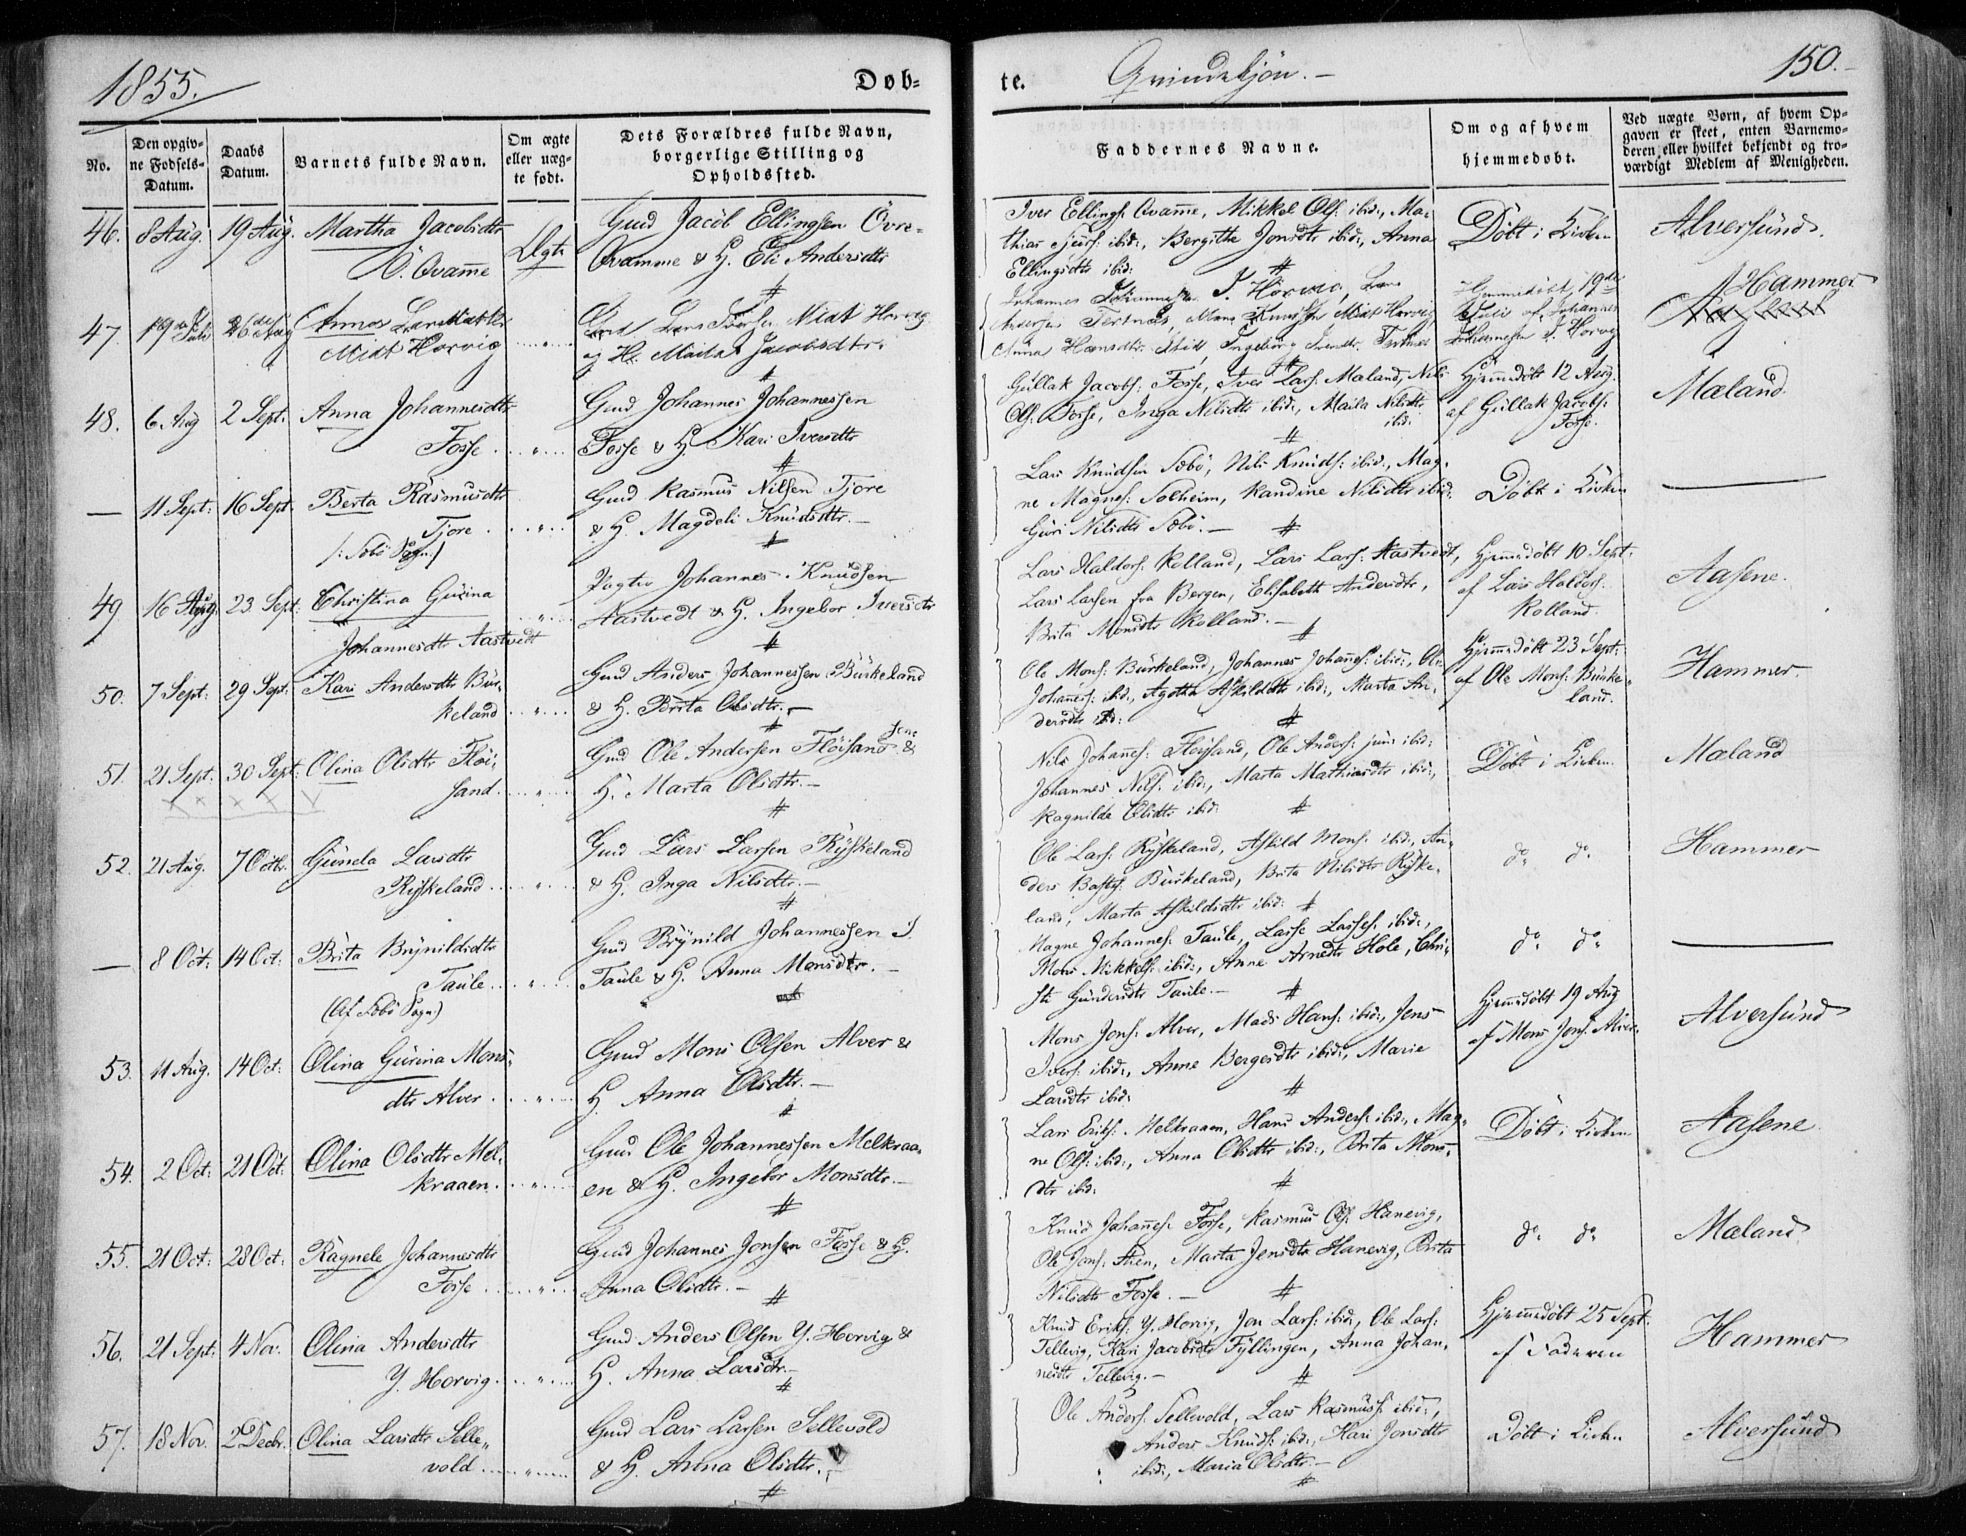 1855.
Døb-
te.
Qvindekjön.-
150.-
No.
Den opgiv-
ne Fødsels-
Datum.
Daabs
Datum.
Barnets fulde Navn.
Om ægte
eller uæg-
te født.
Dets Forældres fulde Navn,
borgerlige Stilling og
Opholdssted.
Faddernes Navne.
Om og af hvem
hjemmedøbt.
Ved uægte Børn, af hvem Op-
gaven er skeet, enten Barnemo-
deren eller hvilket bekjendt og tro-
værdigt Medlem af Menigheden.
46. 8 Aug. 19 Aug. Martha Jacobsdtr
Ö. Qvam̄e
Ægte
Gmd Jacob Ellingsen Övre-
Qvamme & H. Eli Andersdtr
Iver Ellings: Qvam̄e, Mikkel Ols: ibid:, Ma-
thias Sjurs: ibid:, Bergithe Jonsdtr ibid:, Anna
Ellingsdtr ibid:
Döbt i Kirken
Alversund.
47. 19de Juli 26de Aug Annos Larsdatter
Midt Horvig
Gmd Lars Iversen Midt Horvig
og H. Maila Jacobsdtr.
Johannes Johannessen I. Horvig, Lars
Andersen Tertnæs, Mons Knudsen Midt Horvig
Anna Hansdtr ibid, Ingeborg Iversdtr Tertnes
Hjemmedöbt 19de
Juli af Johannes
Johannessen I. Horvig
Hammer
48. 6 Aug 2 Sept: Anna Johannesdtr
Fosse
Gmd Johannes Johannessen
Fosse & H. Kari Iversdtr
Gullak Jacobs: Fosse, Iver Lars: Maland, Nils
Ols: Fosse, Inga Nilsdtr ibid:, Maila Nilsdtr
ibid:
Hjem̄edöbt 12 Aug.
af Gullak Jacobs:
Fosse.
Maland.
— 11 Sept: 16 Sept. Berta Rasmusdtr
Tjore
/: Sæbö Sogn:/
Gmd Rasmus Nilsen Tjore
& H. Magdeli Knudsdtr.-
Lars Knudsen Sæbö, Nils Knuds: ibid:, Mag-
ne Magnes: Solheim, Randine Nilsdtr ibid:
Guri Nilsdtr Sæbö.-
Döbt i Kirken
49 16 Aug. 23 Sept: Christina Gurina
Johannesdtr Aastvedt
Johannes Knudsen
Aastvedt & H. Ingebor Iversdtr
Lars Haldors: Rolland, Lars Lars: Aastvedt,
Lars Larsen fra Bergen, Elisabeth Andersdtr,
Brita Monsdtr Rolland.-
Hjem̄edöbt 10 Sept:
af Lars Haldors:
Rolland.
Aasene.
50. 7 Sept: 29 Sept: Kari Andersdtr Bur-
keland
Gmd Anders Johannessen Burkeland
& H. Brita Olsdtr.-
Ole Mons: Burkeland, Johannes Johan̄es: ibid:, Ole
Johan̄es: ibid:, Agatha Askildsdtr ibid:, Marta An-
dersdtr ibid:
Hjem̄edöbt 23 Sept:
af Ole Mons: Burke-
land.
Hammer.
51. 21 Sept. 30 Sept: Olina Olsdtr Flöi-
sand.
Gmd Ole Andersen Flöisand sene &
H. Marta Olsdtr.-
Nils Johan̄es: Flöisand, Ole Anders: juni ibid:
Johannes Nils: ibid:, Marta Mathiasdtr ibid:,
Ragnilda Olsdtr ibid:
Döbt i Kirken
Maland
52. 21 Aug. 7 Octbr. Gunela Larsdtr
Ryskeland
Gmd Lars Larsen Ryskeland
& H. Inga Nilsdtr.-
Ole Lars: Ryskeland, Askild Mons: ibid:, An-
ders Bastes: Burkeland, Brita Nilsdtr Ryske-
land, Marta Askildsdtr ibid:
do do
Hammer
— 8 Oct: 14 Oct: Brita Brynildsdtr
Taule
(Af Sæbö Sogn)
Gmd Brynild Johannessen I
Taule & H. Anna Monsdtr.-
Magne Johannes: Taule, Lasse Lasses: ibid:,
Mons Mikkels: ibid:, Anne Arnesdtr Hole, Chri-
sti Gundersdtr Taule.-
do do
53. 11 Aug. 14 Oct: Olina Gurina Mons-
dtr Alver
Gmd Mons Olsen Alver &
H Anna Olsdtr.-
Mons Jons: Alver, Mads Hans: ibid:, Jens
Ivers: ibid:, Anne Bergesdtr ibid:, Marie
Larsdtr ibid:
Hjem̄edöbt 19 Aug
af Mons Jons: Alver.
Alversund
54. 2 Oct: 21 Oct: Olina Olsdtr Mel-
kraaen
Gmd Ole Johannessen Melkraa-
en & H. Ingebor Monsdtr.-
Lars Eriks: Melkraaen, Hans Anders: ibid:, Mag-
ne Ols: ibid:, Anna Olsdtr ibid:, Brita Mons-
dtr ibid:
Döbt i Kirken
Aasene
55. 21 Oct: 28 Oct: Ragnele Johannesdtr
Fosse
Gmd Johannes Jonsen Fosse & H.
Anna Olsdtr.-
Knud Johan̄es: Fosse, Rasmus Ols: Hanevig,
Ole Jons: Steen, Marta Jensdtr Hanevig, Brita
Nilsdtr Fosse.-
do do
Maland
56. 21 Sept: 4 Nov. Olina Andersdtr
Y. Horvig.
Gmd Anders Olsen Y. Horvig &
H. Anna Larsdtr.-
Knud Eriks: Y. Horvig, Jon Lars: ibid:, Ole Lars:
Tellevig, Kari Jacobsdtr Fyllingen, Anna Johan-
nesdtr Tellevig.-
Hjem̄edöbt 25 Sept:
af Faderen
Hammer
57. 18 Nov. 2 Decbr. Olina Larsdtr Selle-
vold
Gmd Lars Larsen Sellevold
& H. Anna Olsdtr.-
Ole Anders: Sellevold, Lars Rasmus: ibid:,
Anders Knuds: ibid:, Kari Jonsdtr
ibid:, Maria Olsdtr.-
Döbt i Kirken
Alversund